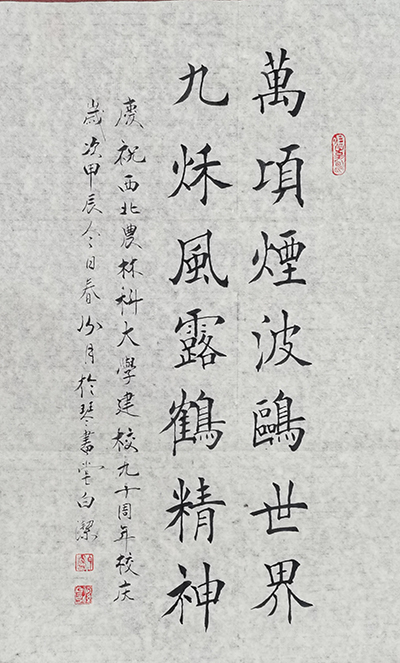 萬頃煙波鷗世界
九秋風露鶴精神
慶祝西北農林科大學建校九十周年校庆
歲次甲辰今日春分月於琴書堂白潔